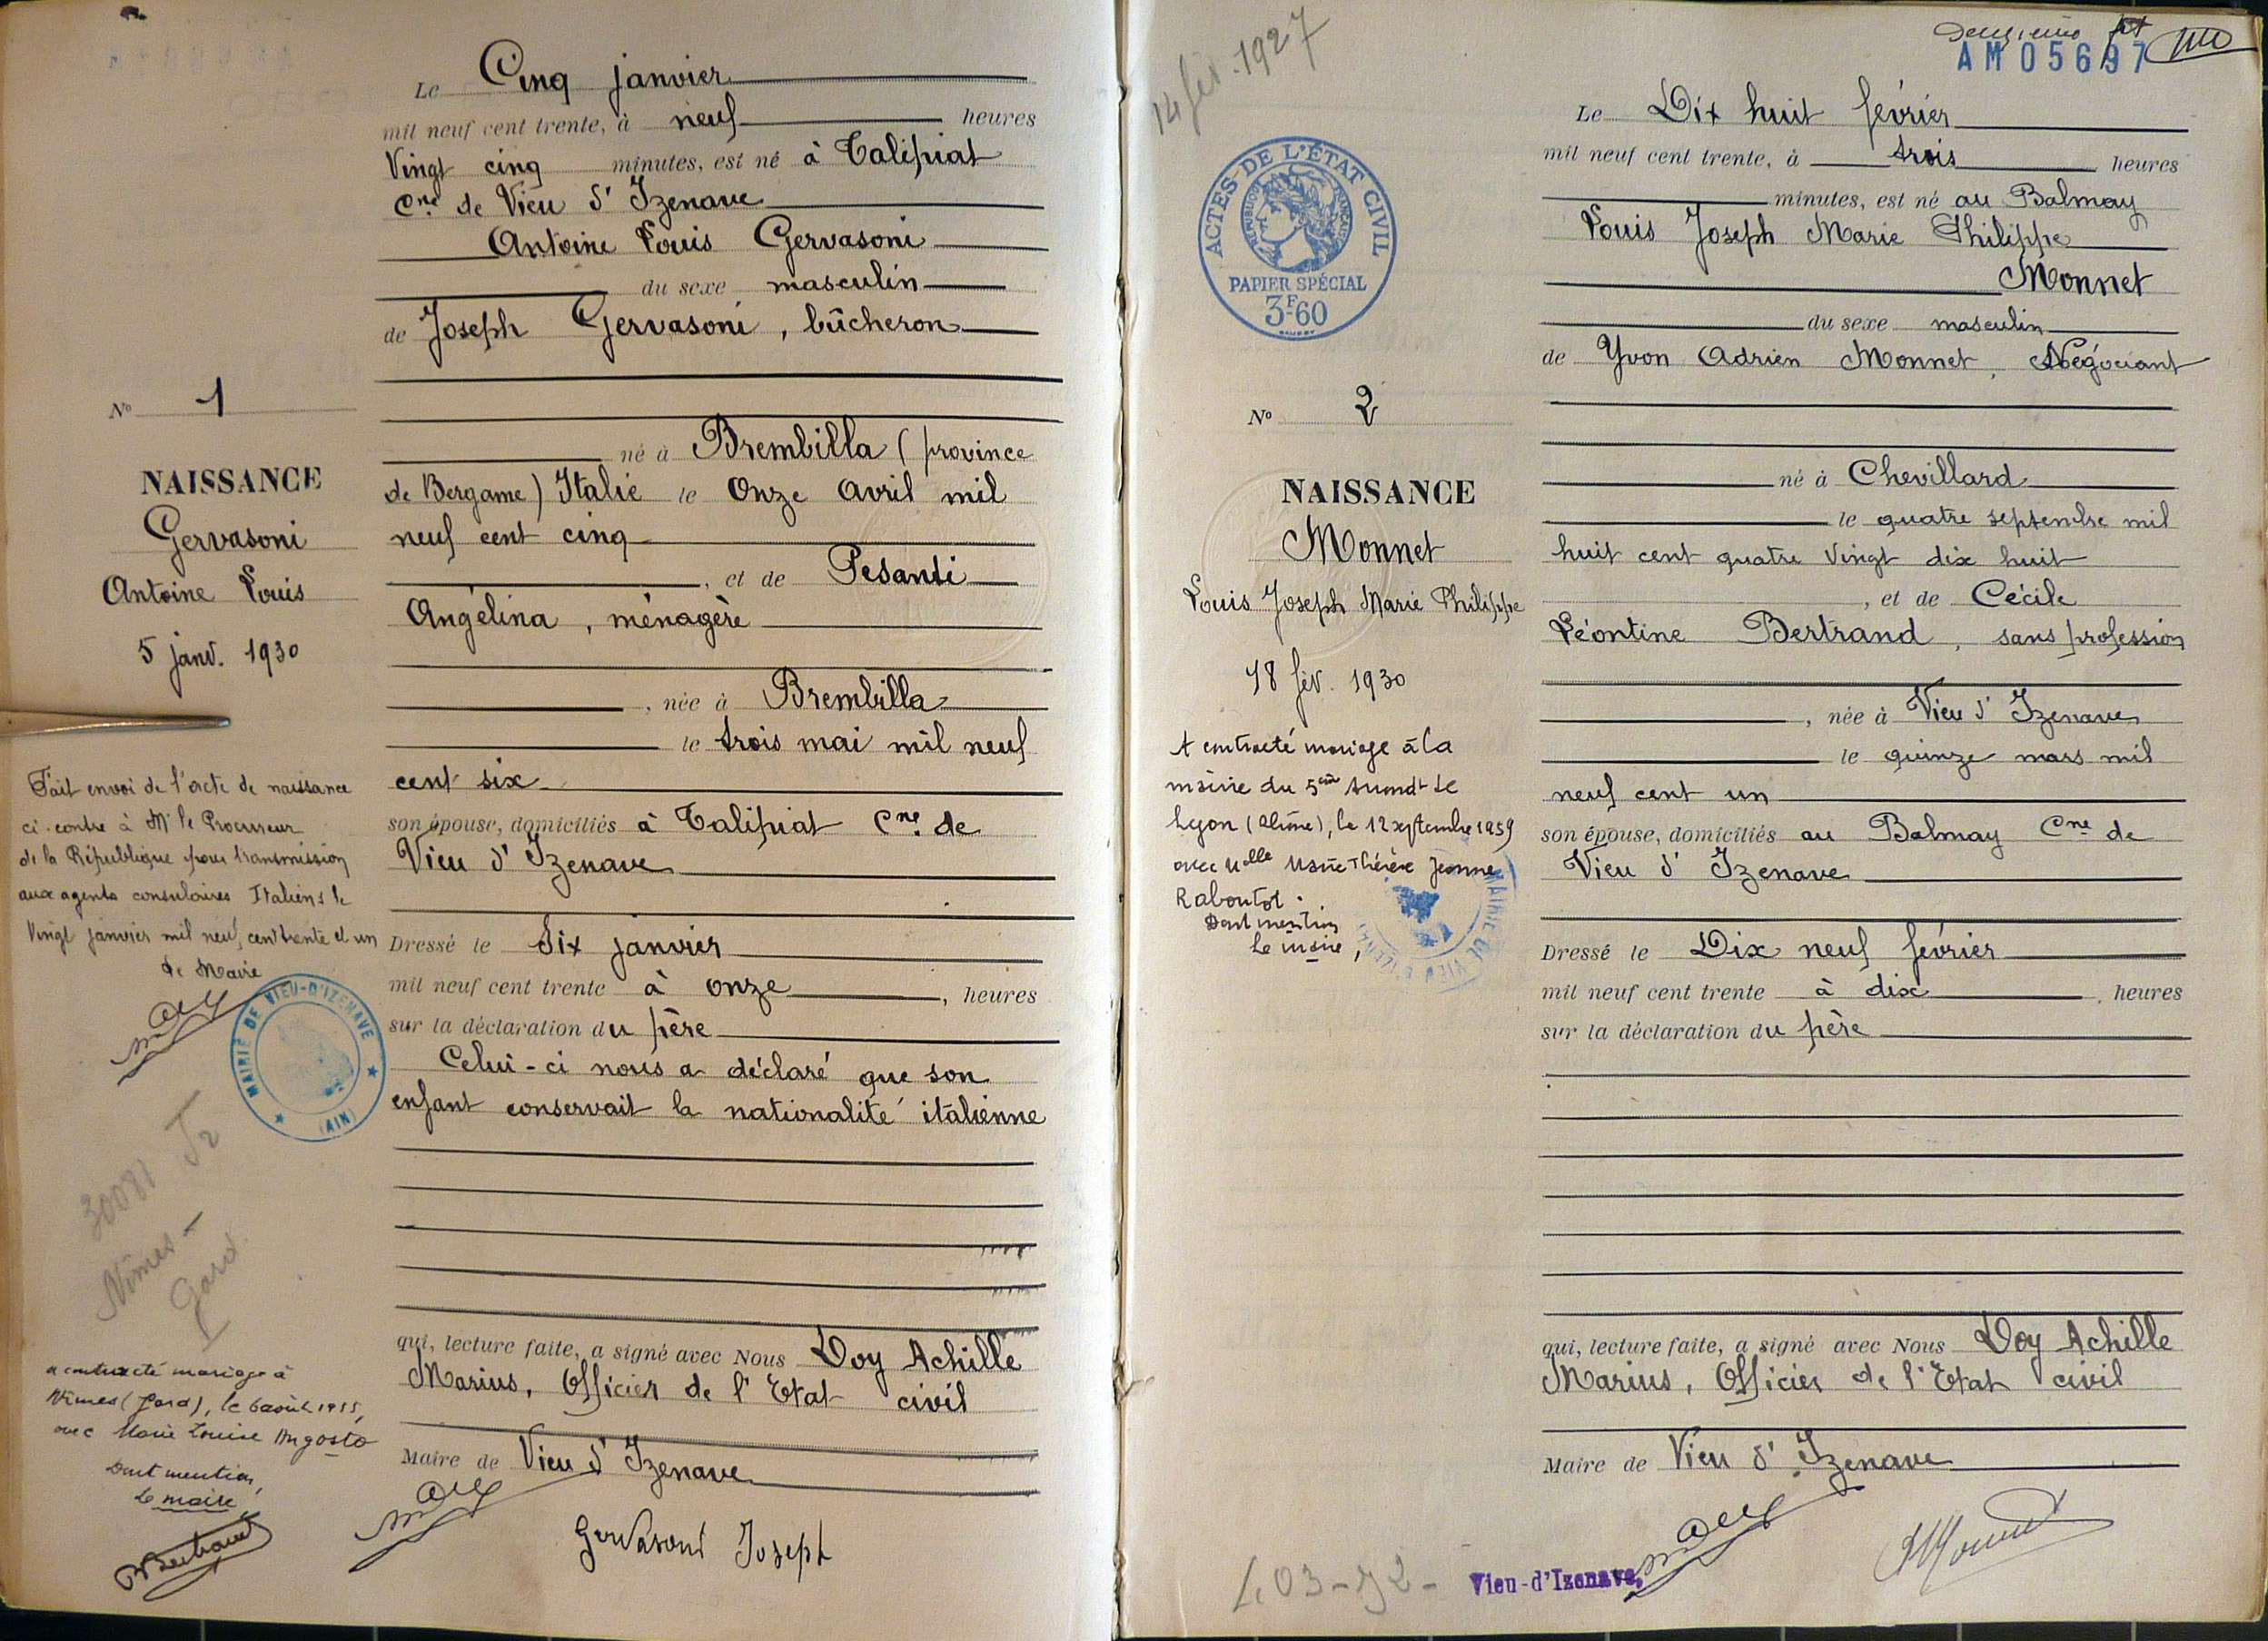 Le Cinq janvier
mil neuf cent trente, à neuf heures
Vingt cinq minutes, est né à Talipiat
Cne de Vieu d'Izenave
Antoine Louis Gervasoni
du sexe masculin
de Joseph Gervasoni, bûcheron
né à Brembilla (province
de Bergame) Italie le Onze Avril mil
neuf cent cinq
, et de Pesanti
Angélina, ménagère
, née à Brembilla
le trois mai mil neuf
cent six
son épouse, domiciliés à Talipiat Cne de
Vieu d'Izenave
Dressé le Six janvier
mil neuf cent trente à onze, heures
sur la déclaration du père
Celui-ci nous a déclaré que son
enfant conservait la nationalité italienne
qui, lecture faite, a signé avec Nous Doy Achille
Marius, Officier de l'Etat civil
Maire de Vieu d'Izenave
Gervasoni Joseph
No 1
NAISSANCE
Gervasoni
Antoine Louis
5 janv. 1930
Fait envoi de l'acte de naissance
ci-contre à Mr le Procureur
de la République pour transmission
aux agents consulaires Italiens le
Vingt janvier mil neuf cent trente et un
Le Maire
MAIRIE DE VIEU-D'IZENAVE
(AIN)
30081
Nîmes -
Gard
a contracté mariage à
Nîmes (Gard), le 6 août 1955,
avec Marie Louise Angosto
Dont mention,
Le maire,
Bertrand
14 fév. 1927
Deuxième
AM 05697
ACTES DE L'ÉTAT CIVIL
RÉPUBLIQUE FRANÇAISE
PAPIER SPÉCIAL
3F60
No 2
NAISSANCE
Monnet
Louis Joseph Marie Philippe
18 fév. 1930
A contracté mariage à la
mairie du 5ème Arrondt de
Lyon (Rhône), le 12 septembre 1959
avec Melle Marie Thérèse Jeanne
Raboutot.
Dont mention
Le maire,
Le Dix huit février
mil neuf cent trente, à trois heures
minutes, est né au Balmay
Louis Joseph Marie Philippe
Monnet
du sexe masculin
de Yvon Adrien Monnet, Négociant
né à Chevillard
le quatre septembre mil
huit cent quatre vingt dix huit
, et de Cécile
Léontine Bertrand, sans profession
, née à Vieu d'Izenave
le quinze mars mil
neuf cent un
son épouse, domiciliés au Balmay Cne de
Vieu d'Izenave
Dressé le Dix neuf février
mil neuf cent trente à dix, heures
sur la déclaration du père
qui, lecture faite, a signé avec Nous Doy Achille
Marius, Officier de l'Etat civil
Maire de Vieu d'Izenave
Monnet
Vieu-d'Izenave,